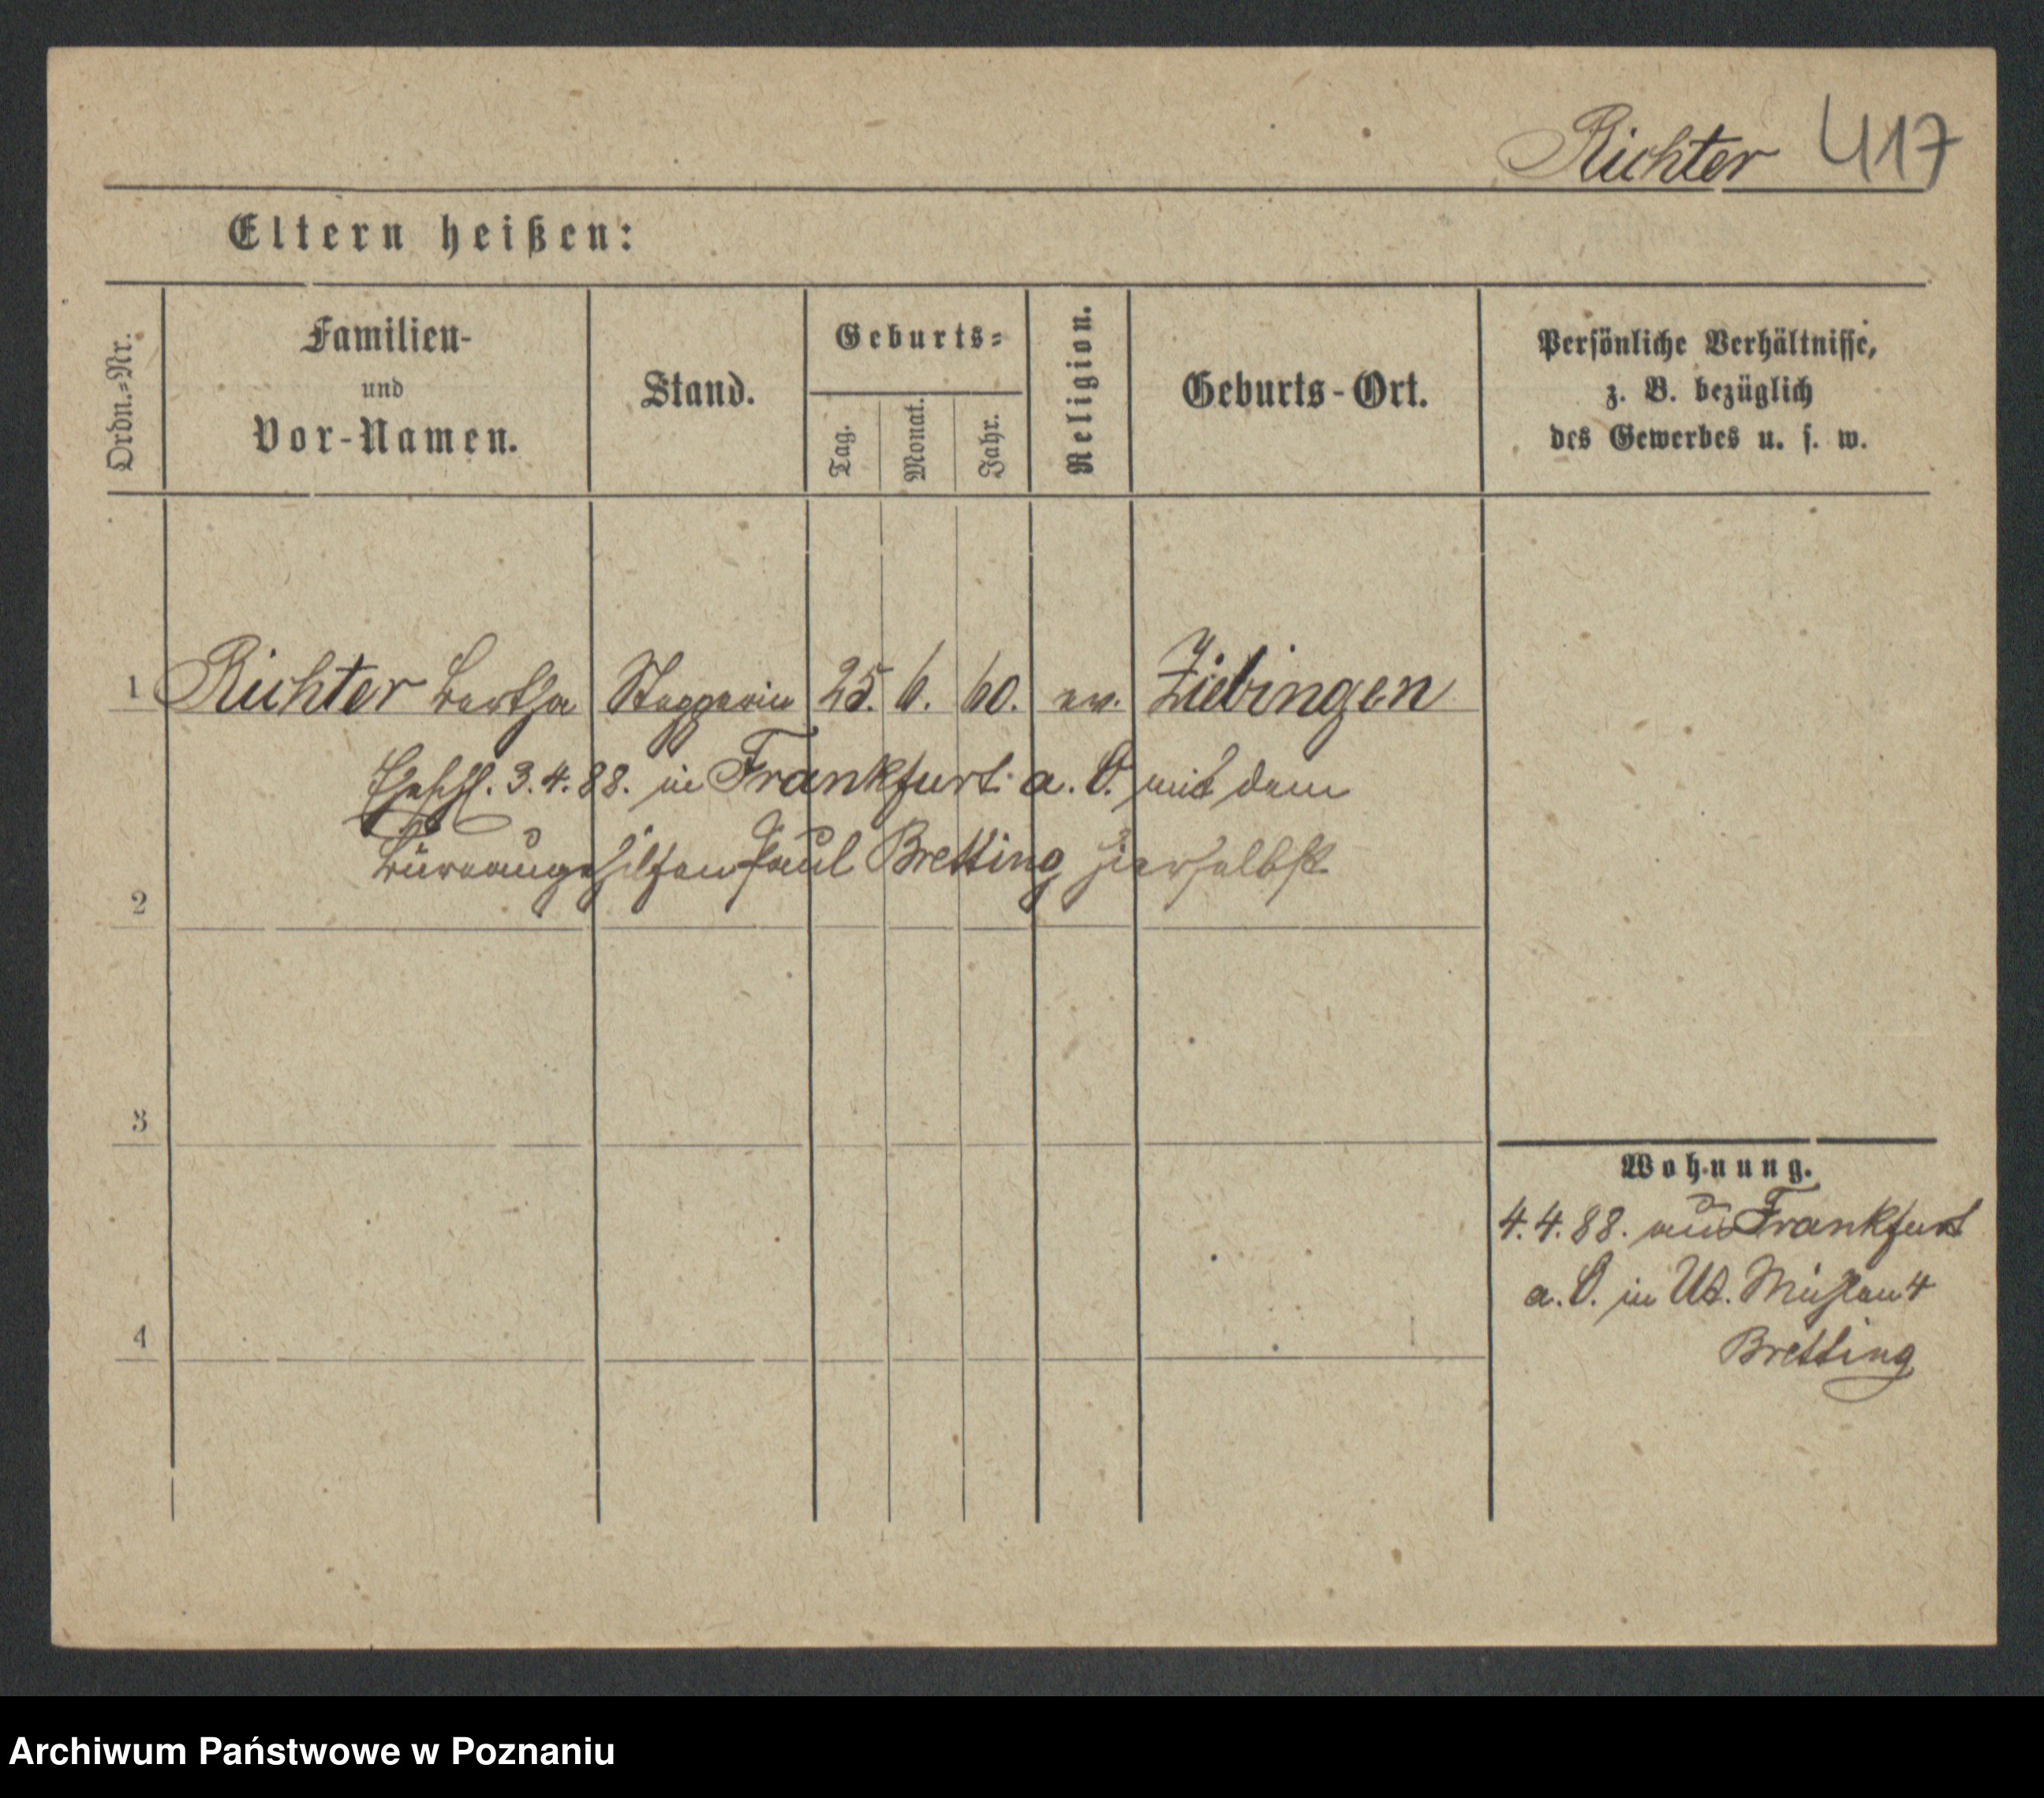 Richter 417
Eltern heißen:
Ordn.-Nr.
Familien-
und
Vor-Namen.
Stand.
Geburts-
Tag.
Monat.
Jahr.
Religion.
Geburts-Ort.
Persönliche Verhältnisse,
z. B. bezüglich
des Gewerbes u. s. w.
1 Richter Bertha Stepperin 25. 6. 60. ev. Ziebingen
Eheschl. 3.4.88. in Frankfurt a. O. mit dem
Büreaugehilfen Paul Bretting hierselbst
2
3
4
Wohnung.
4.4.88. aus Frankfurt
a. O. in Ut. Mühlen 4
Bretting
Archiwum Państwowe w Poznaniu